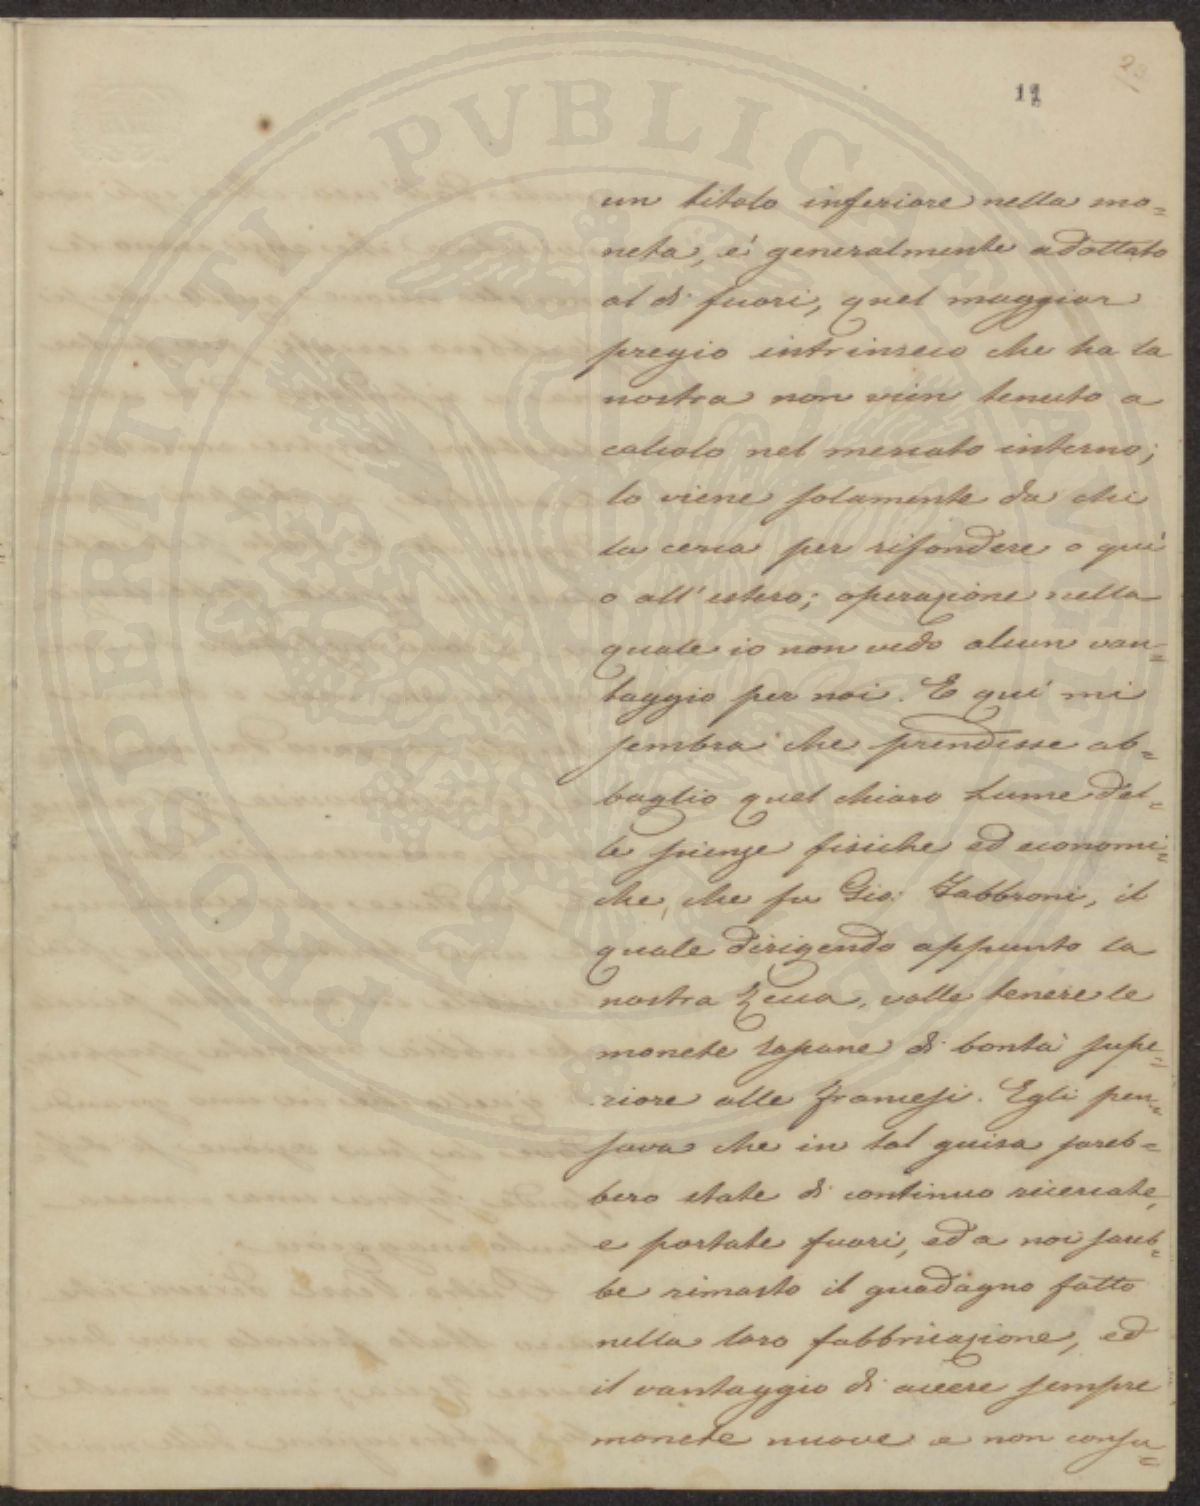 23
11
un titolo inferiore nella mo=
neta, é generalmente adottato
al di fuori, quel maggior
pregio intrinseco che ha la
nostra non vien tenuto a
calcolo nel mercato interno;
lo viene solamente da chi
la cerca per rifondere o quì
o all'estero; operazione nella
quale io non vedo alcun van=
taggio per noi. E quì mi
sembra che prendesse ab=
baglio quel chiaro Lume del=
le scienze fisiche ed economi=
che, che fu Gio: Fabbroni, il
quale dirigendo appunto la
nostra Zecca, volle tenere le
monete toscane di bontà supe=
riore alle francesi. Egli pen=
sava che in tal guisa sareb=
bero state di continuo ricercate,
e portate fuori, ed a noi sareb=
be rimasto il guadagno fatto
nella loro fabbricazione, ed
il vantaggio di avere sempre
monete nuove e non consu=
PROSPERITATI PVBLICAE